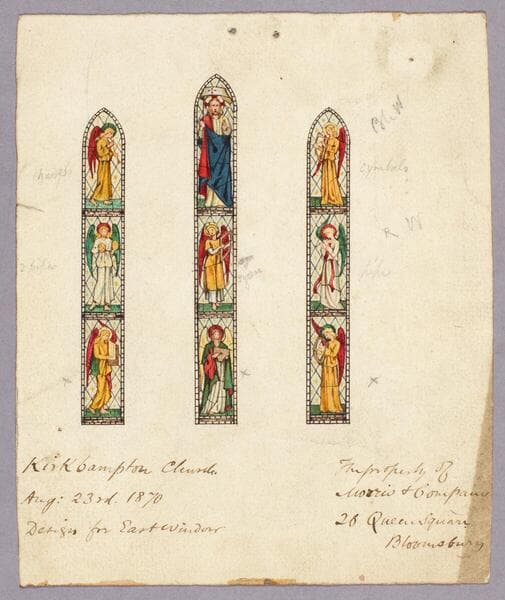 harps
cymbals
R W
Kirkbampton Church
Aug: 23rd. 1870
Design for East window
The property of
Morris & Company
26 Queen Square
Bloomsbury